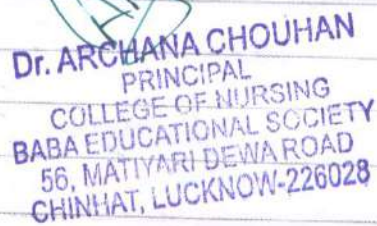 Dr. ARCHANA CHOUHAN
PRINCIPAL
COLLEGE OF NURSING
BABA EDUCATIONAL SOCIETY
56, MATIYARI DEWA ROAD
CHINHAT, LUCKNOW-226028